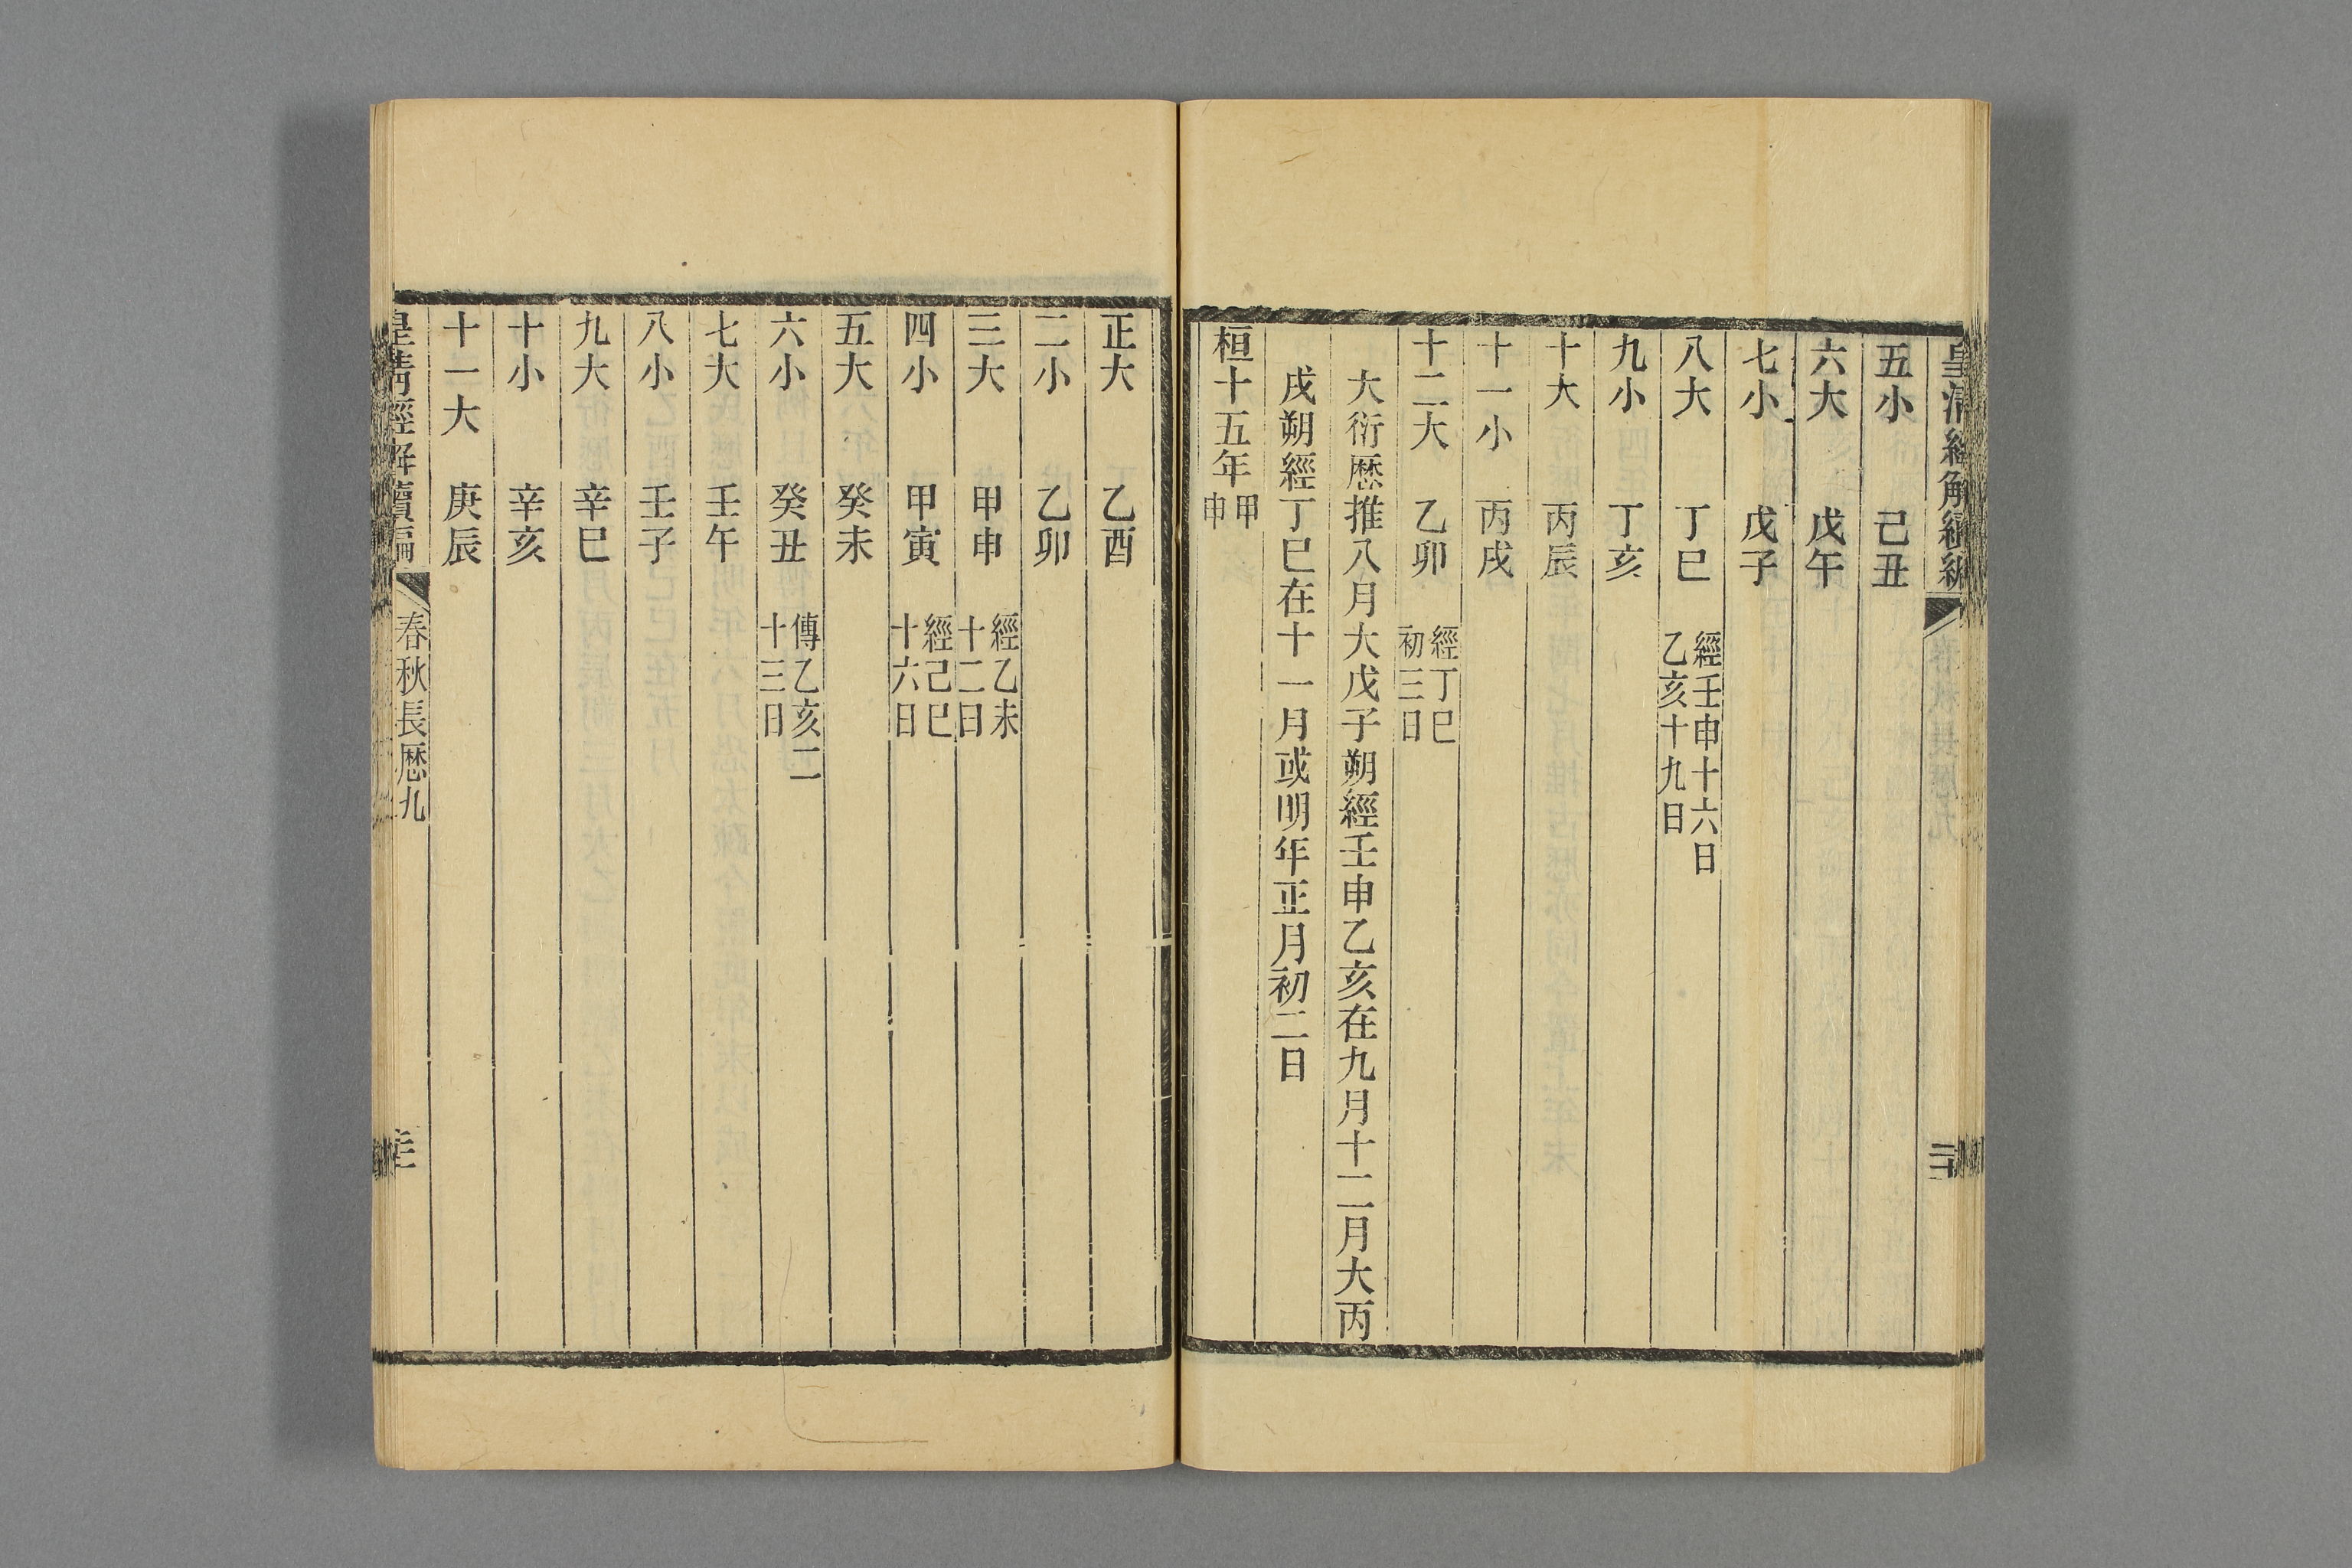 皇清經解續編
五小 己丑
六大 戊午
七小 戊子
八大 丁巳 經壬申十六日
乙亥十九日
九小 丁亥
十大 丙辰
十一小 丙戌
十二大 乙卯 經丁巳
初三日
大衍厯推八月大戊子朔經壬申乙亥在九月十二月大丙
戌朔經丁巳在十一月或明年正月初二日
桓十五年 甲
申
正大 乙酉
二小 乙卯
三大 甲申 經乙未
十二日
四小 甲寅 經己巳
十六日
五大 癸未
六小 癸丑 傳乙亥二
十三日
七大 壬午
八小 壬子
九大 辛巳
十小 辛亥
十一大 庚辰
皇清經解續編 春秋長厯九